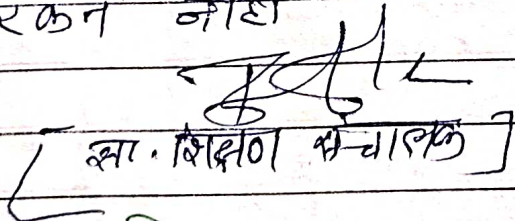 रकन नाही
[ सा. शिक्षण संचालक ]